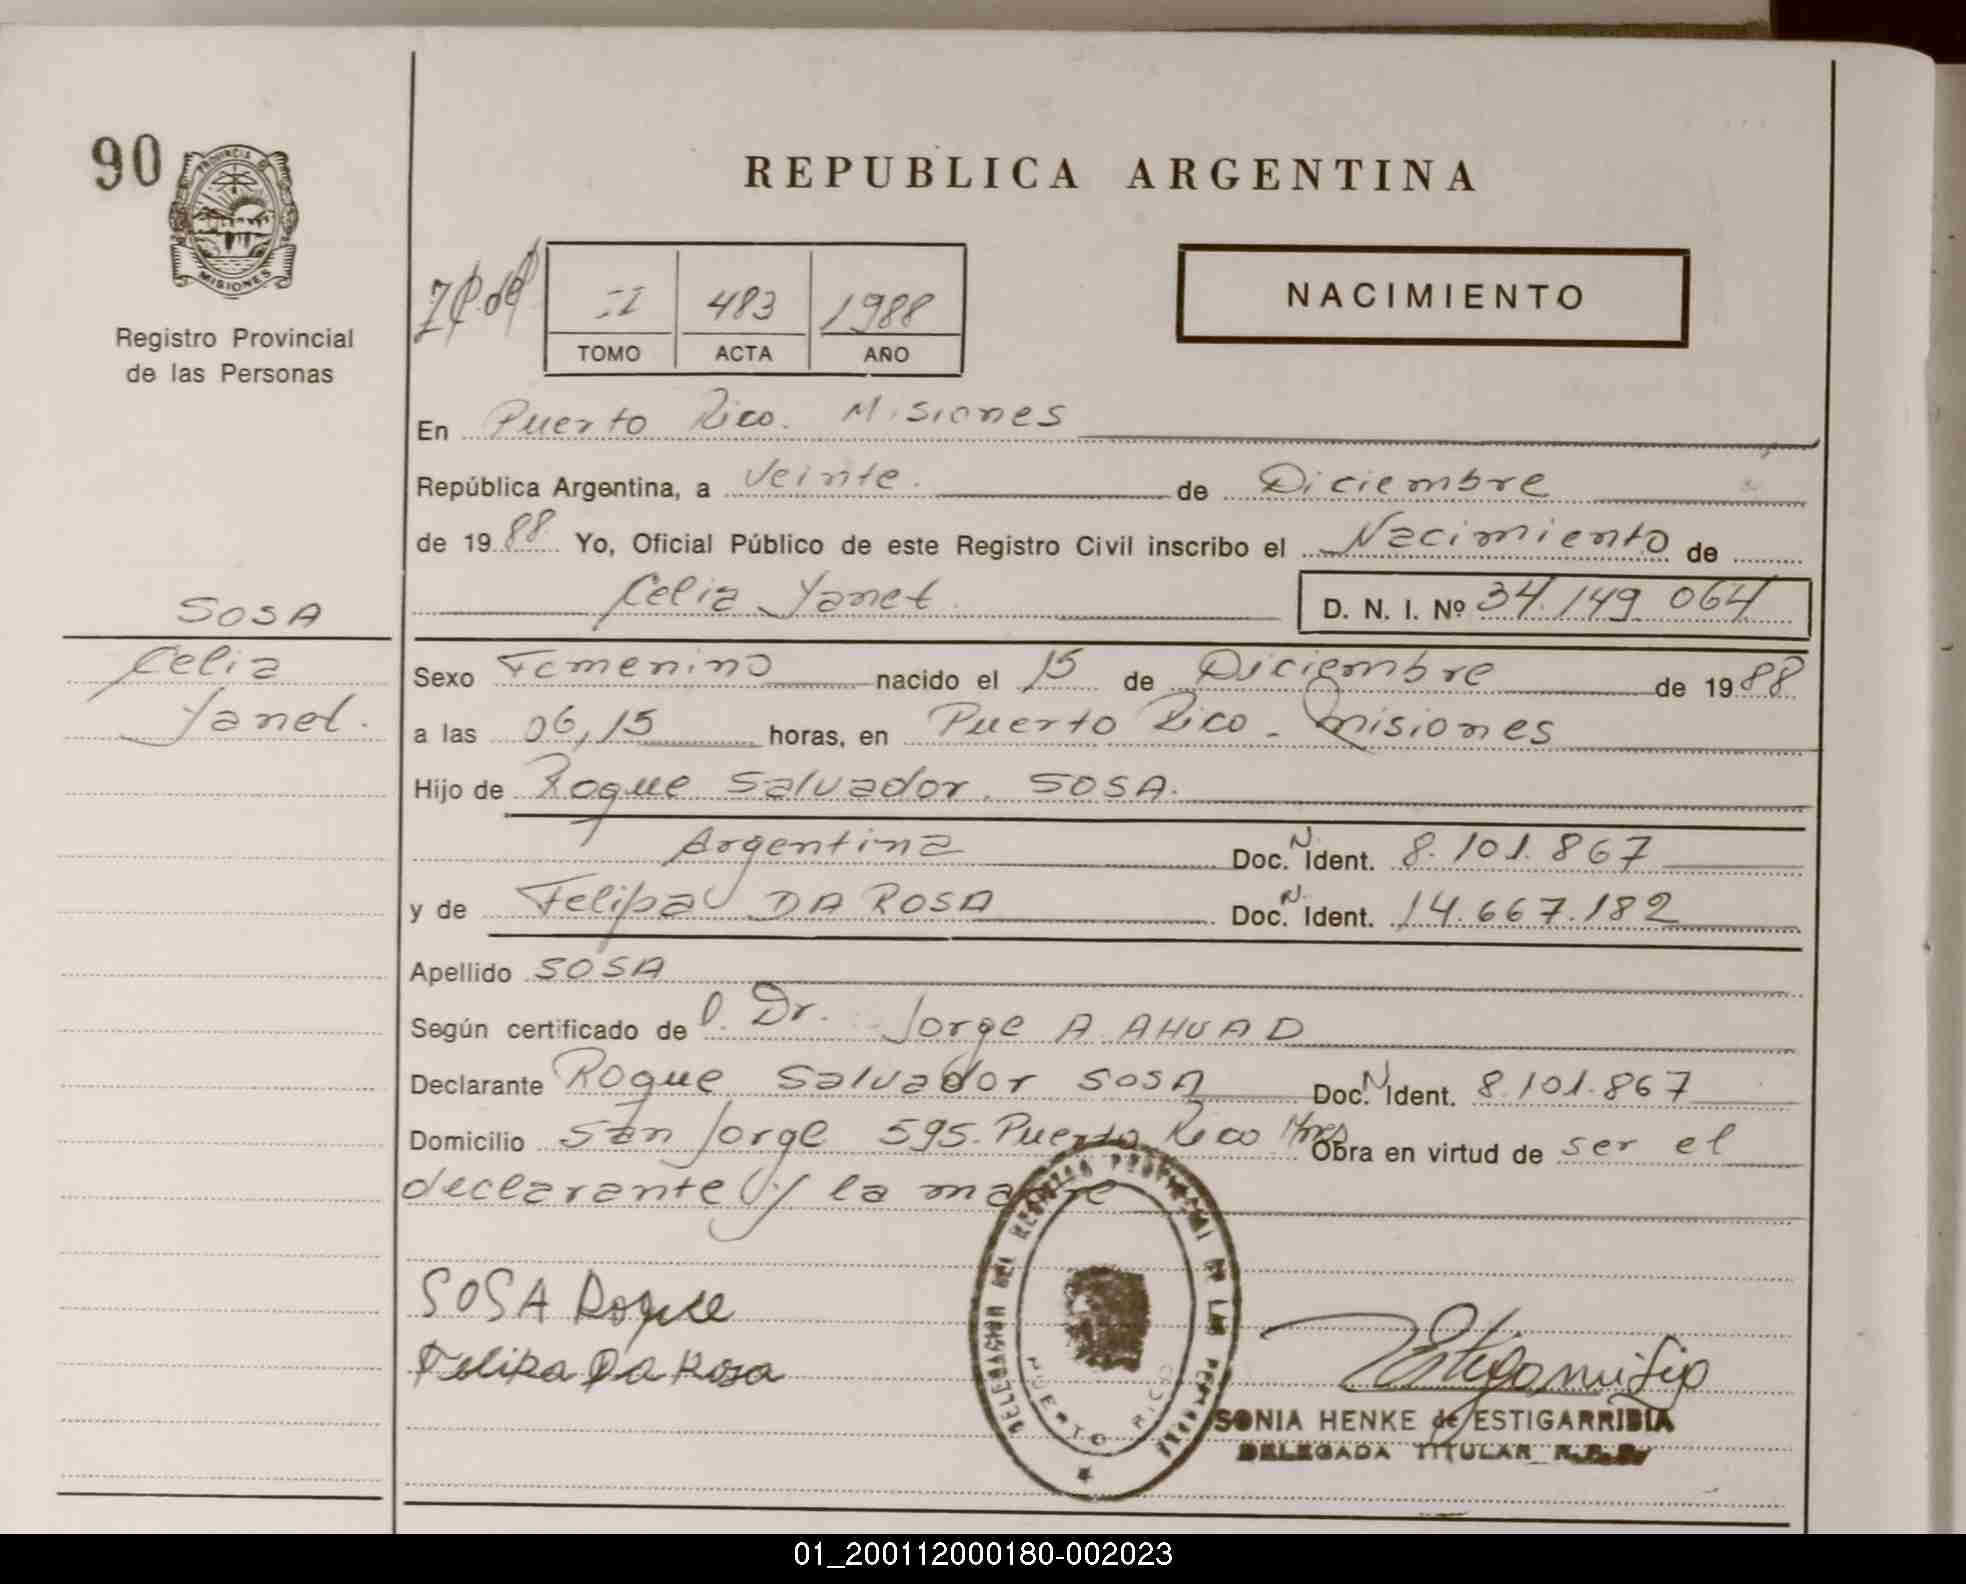 90
PROVINCIA DE
MISIONES
Registro Provincial
de las Personas
SOSA
Celia
Yanet.
REPUBLICA ARGENTINA
II 483 1988
TOMO ACTA AÑO
NACIMIENTO
En Puerto Rico. Misiones
República Argentina, a Veinte. de Diciembre
de 1988 Yo, Oficial Público de este Registro Civil inscribo el Nacimiento de
Celia Yanet. D. N. I. Nº 34.149.064
Sexo Femenino nacido el 15 de Diciembre de 1988
a las 06,15 horas, en Puerto Rico - Misiones
Hijo de Roque Salvador SOSA.
Argentina Doc. N. Ident. 8.101.867
y de Felipa DA ROSA Doc. N. Ident. 14.667.182
Apellido SOSA
Según certificado de Dr. Jorge A. AHUAD
Declarante Roque Salvador SOSA Doc. N Ident. 8.101.867
Domicilio San Jorge 595. Puerto Rico Mnes Obra en virtud de ser el
declarante y la madre
SOSA Roque
Felipa Da Rosa
DELEGACION DEL REGISTRO PROVINCIAL DE LAS PERSONAS
PUERTO RICO
SONIA HENKE de ESTIGARRIBIA
DELEGADA TITULAR R.P.P.
01_200112000180-002023